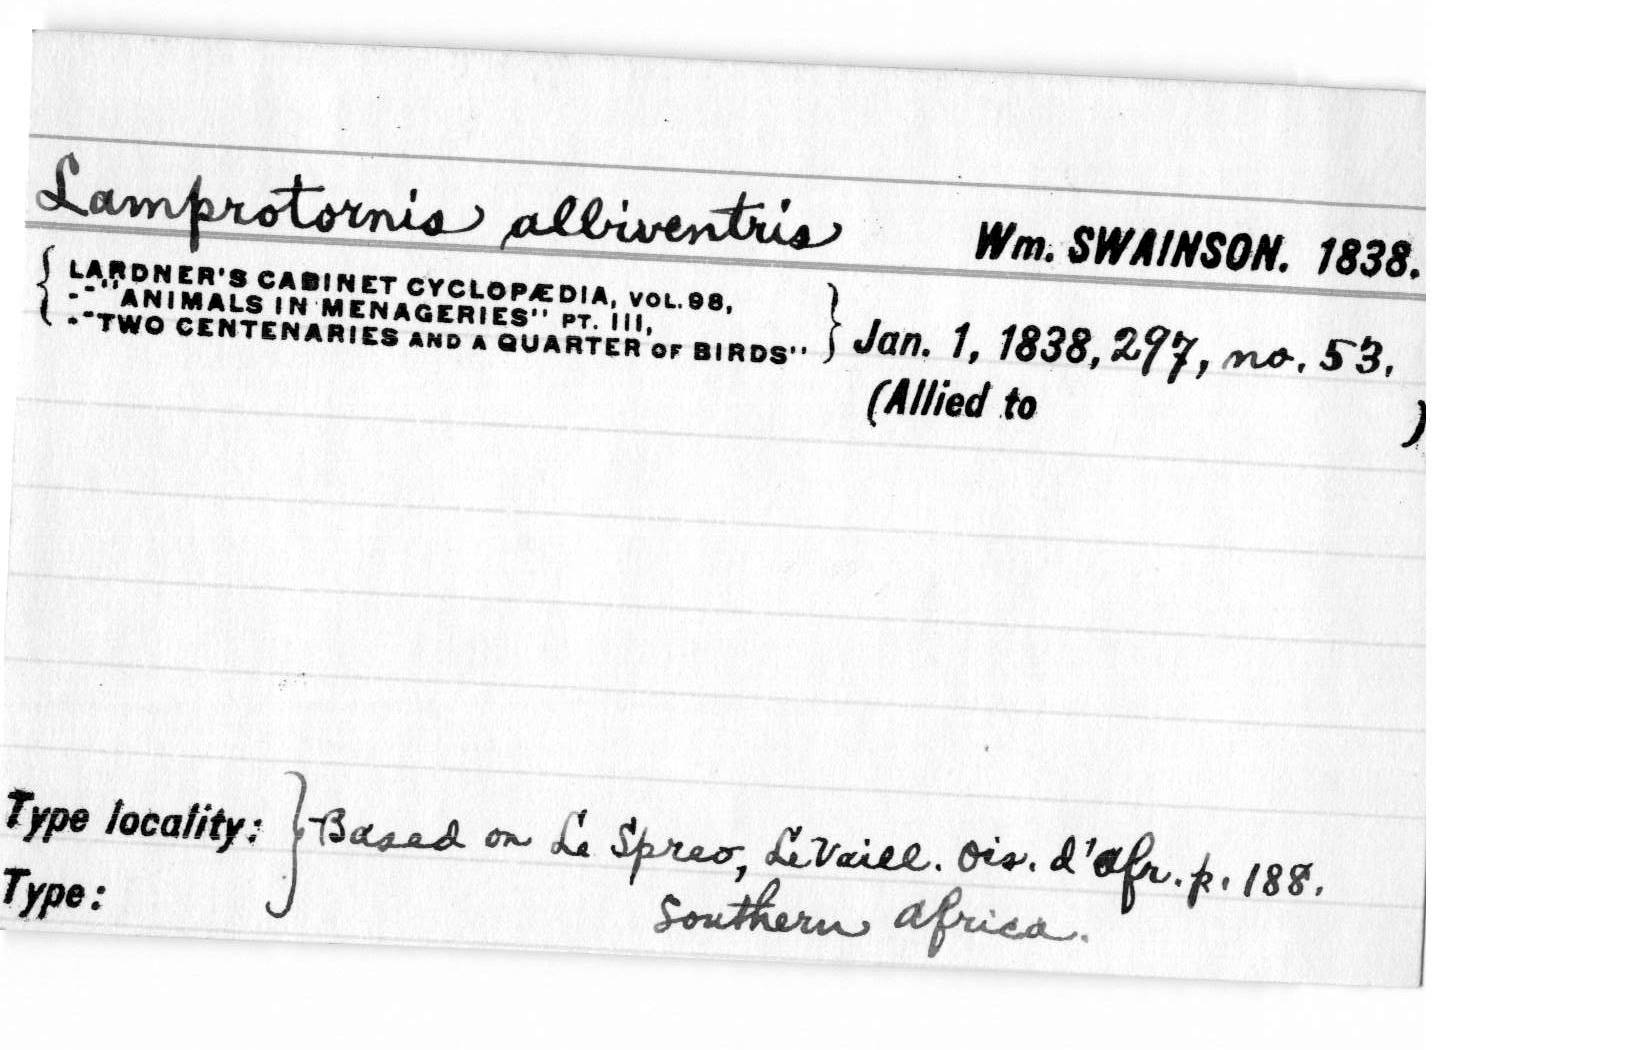 Lamprotornis albiventris Wm. SWAINSON. 1838.
LARDNER'S CABINET CYCLOPÆDIA, VOL. 98,
--"ANIMALS IN MENAGERIES" PT. III,
--"TWO CENTENARIES AND A QUARTER OF BIRDS" Jan. 1, 1838, 297, no. 53.
(Allied to )
Type locality: Based on Le Spreo, LeVaill. Ois. d'Afr. p. 188.
Type: Southern Africa.